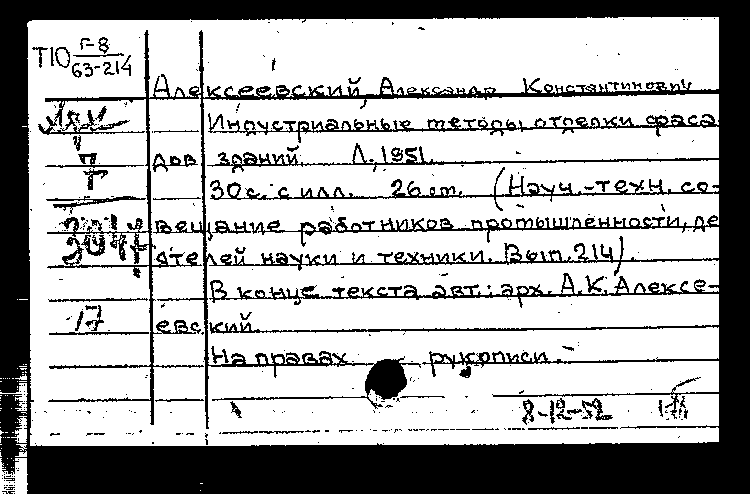 Т10 Г-8
63-214
Алексеевский, Александр Константинович
Индустриальные методы отделки фаса-
7 дов зданий. Л., 1951.
30 с. с илл. 26 см. (Науч.-техн. со-
вещание работников промышленности, де-
ятелей науки и техники. Вып. 214).
В конце текста авт.: арх. А.К. Алексе-
17 евский.
На правах рукописи.
8-12-52